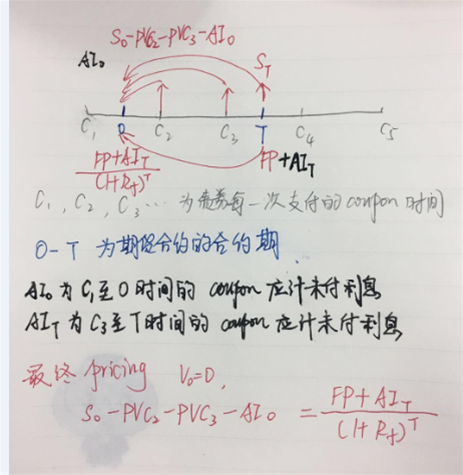 S₀-PVC₂-PVC₃-AI₀
AI₀
S_T
C₁ 0 C₂ C₃ T C₄ C₅
(FP+AI_T)/(1+R_f)^T
FP+AI_T
C₁, C₂, C₃ … 为债券每一次支付的coupon时间
0-T 为期货合约的合约期
AI₀ 为 C₁至0时间的 coupon 应计未付利息
AI_T 为 C₃至T时间的 coupon 应计未付利息
最终 pricing V₀=0,
S₀-PVC₂-PVC₃-AI₀ = (FP+AI_T)/(1+R_f)^T